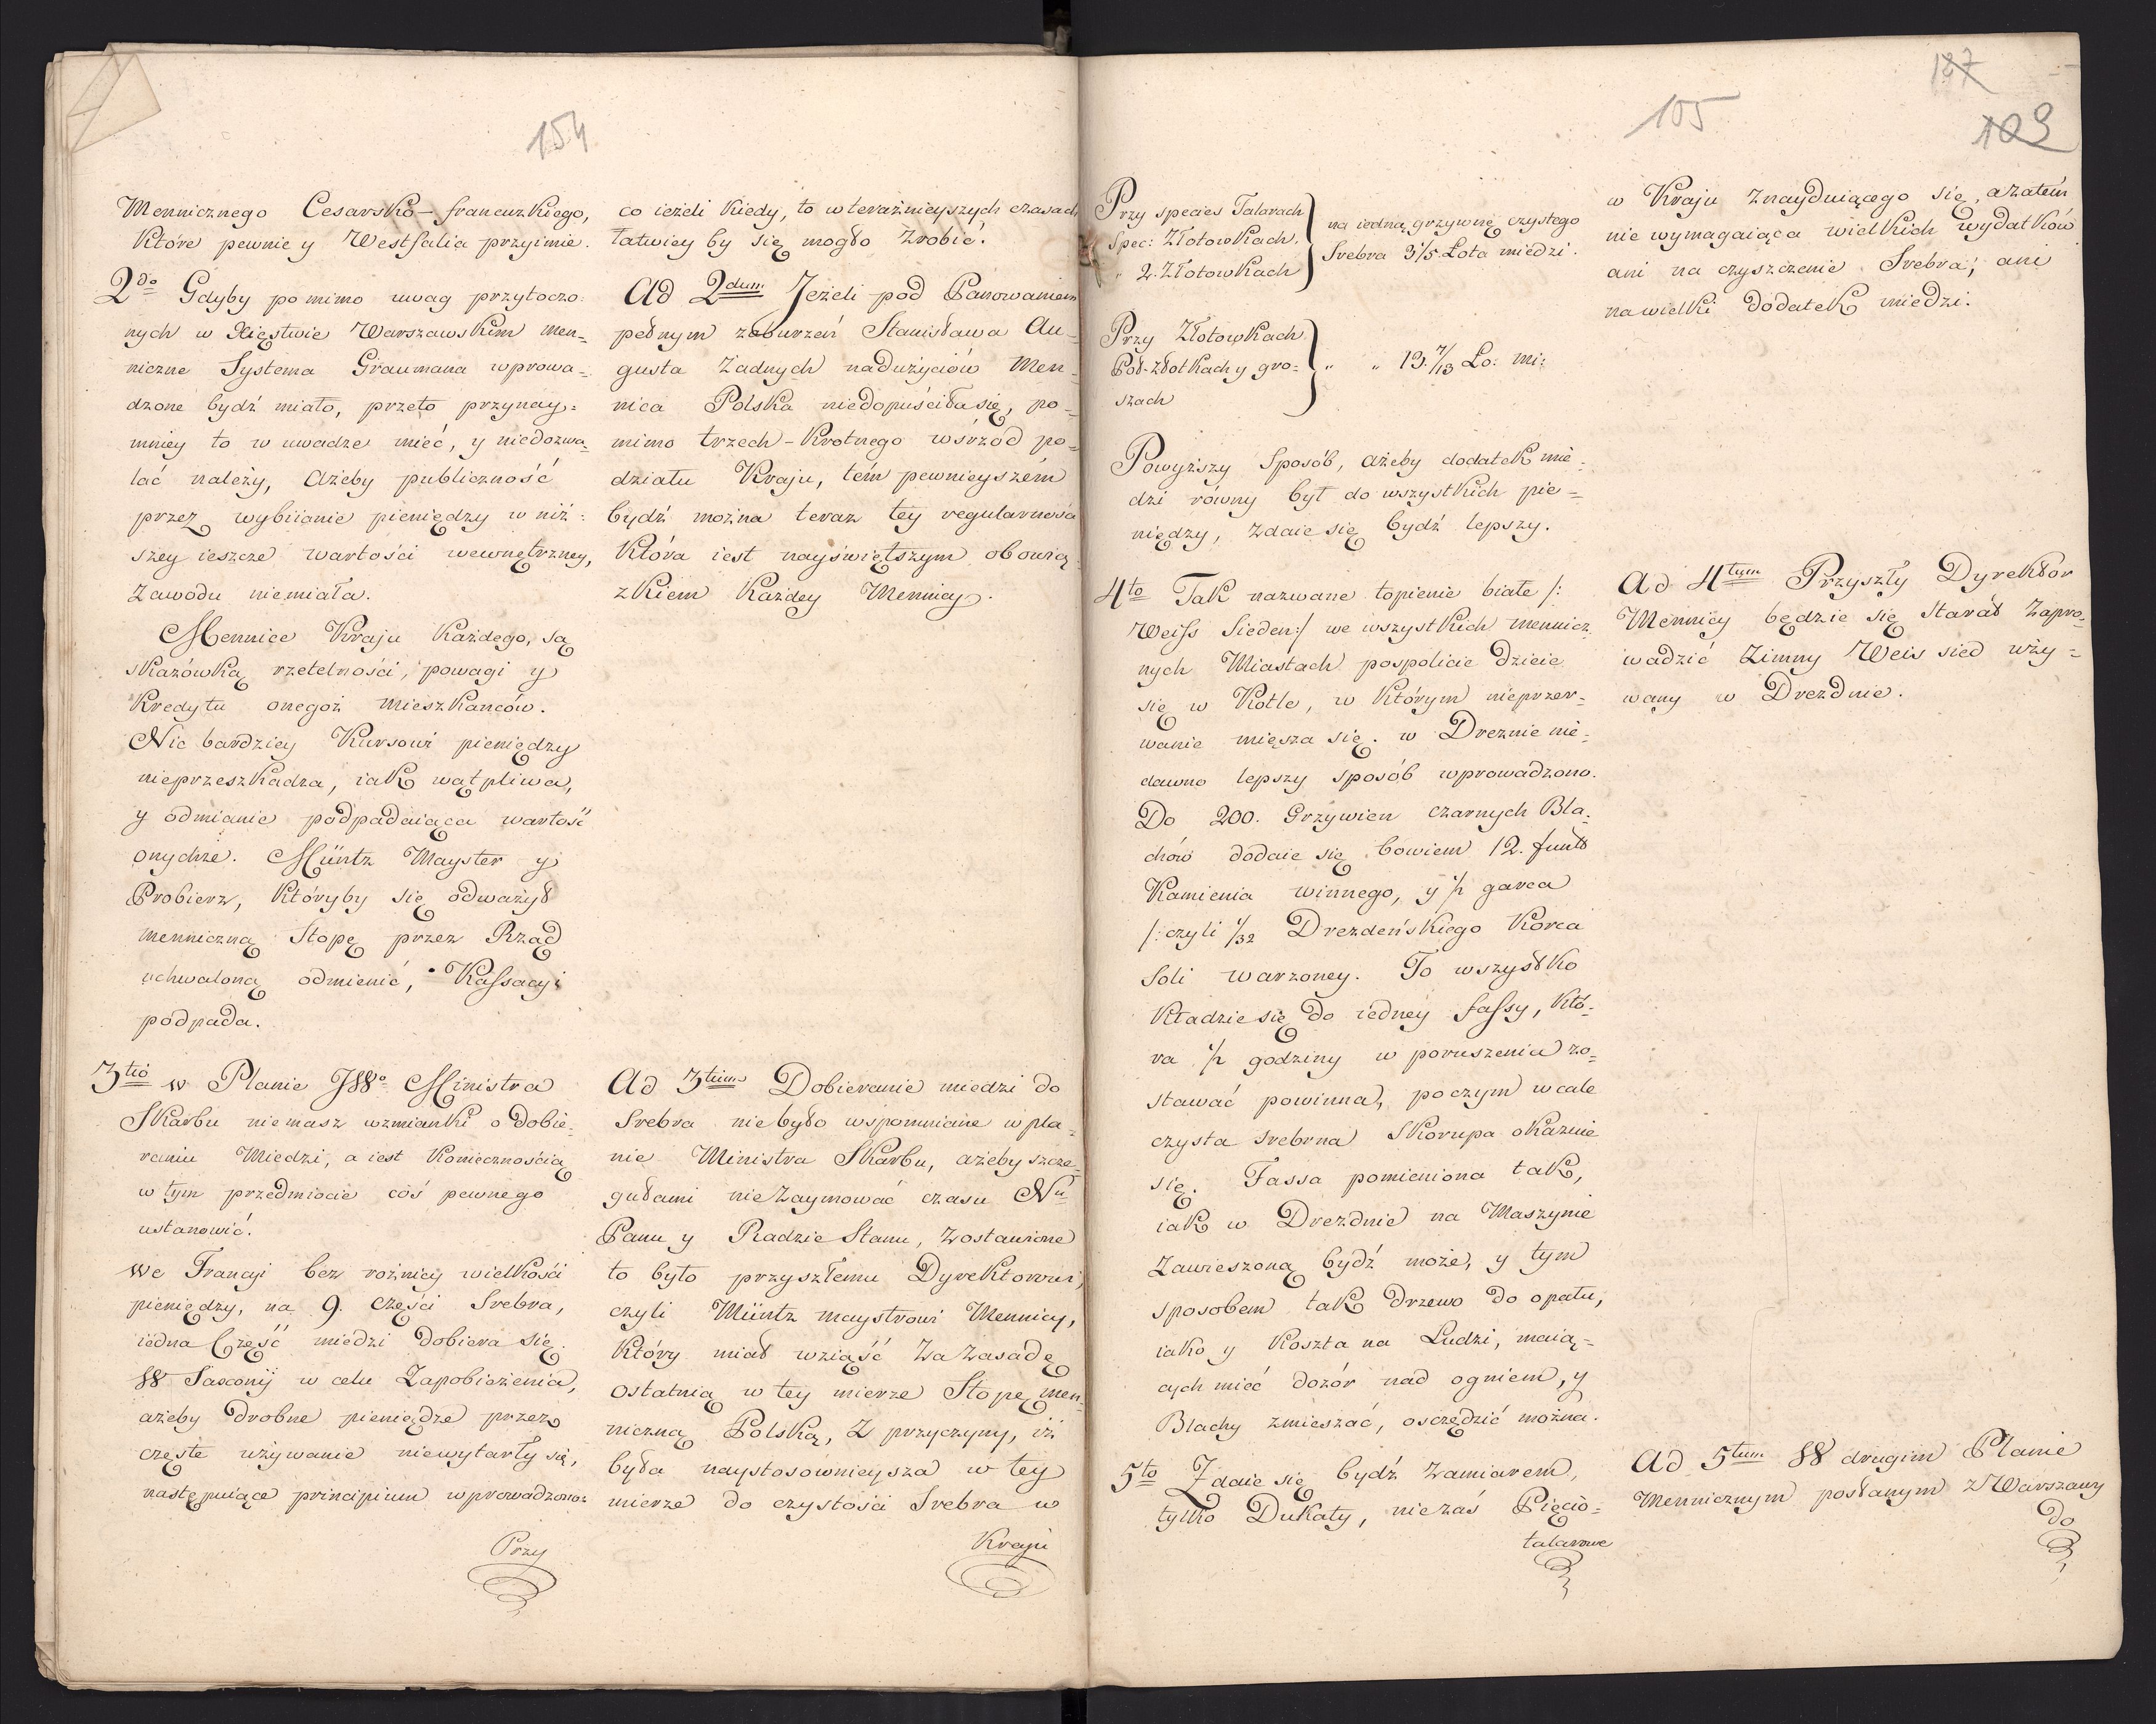 154
Mennicznego Cesarsko-francuzkiego,
które pewnie y Westfalia przyimie.
2do Gdyby pomimo uwag przytoczo-
nych w Xięstwie Warszawskim men-
niczne Systema Graumana wprowa-
dzone bydź miało, przeto przynay-
mniey to w uwadze mieć, y niedozwa-
lać należy, ażeby publiczność
przez wybiianie pieniędzy w niż-
szey ieszcze wartości wewnętrzney,
zawodu niemiała.
Mennice Kraju każdego, są
skazówką rzetelności, powagi y
kredytu onegoż mieszkańców.
Nic bardziey kursowi pieniędzy
nieprzeszkadza, iak wątpliwa,
y odmianie podpadaiąca wartość
onychże. Müntz Mayster y
Probierz, któryby się odważył
menniczną stopę przez Rząd
uchwaloną odmienić, kassacyi
podpada.
3tio w Planie JW° Ministra
Skarbu niemasz wzmianki o dobie-
raniu Miedzi, a iest koniecznością
w tym przedmiocie coś pewnego
ustanowić.
we Francyi bez rożnicy wielkości
pieniędzy, na 9. części Srebra,
iedna Część miedzi dobiera się.
W Saxonij w celu Zapobieżenia,
ażeby drobne pieniędze przez
częste używanie niewytarły się,
następuiące principium wprowadzono:
Przy
co ieżeli kiedy, to w teraźnieyszych czasach
łatwiey by się mogło zrobić.
Ad 2dum Jeżeli pod Panowaniem
pełnym zaburzeń Stanisława Au-
gusta Żadnych nadużyciów Men-
nica Polska niedopuściła się, po-
mimo trzech-krotnego wśrzód po-
działu Kraju, tém pewnieyszém
bydź można teraz tey regularności
która iest nayświętszym obowią-
zkiem każdey Mennicy.
Ad 3tium Dobieranie miedzi do
Srebra niebyło wspomniane w pla-
nie Ministra Skarbu, ażeby szcze-
gułami niezaymować czasu Nu
Panu y Radzie Stanu, zostawione
to było przyszłemu Dyrektorowi,
czyli Müntz maystrowi Mennicy,
który miał wziąść za zasadę
ostatnią w tey mierze Stopę men-
niczną Polską, z przyczyny, iż
była naystosownieysza w tey
mierze do czystości Srebra w
Kraju
127
105
103
Przy species Talarach
Spec: Złotowkach.
" 2. Złotowkach
na iedną grzywnę czystego
Srebra 3 1/5 Łota miedzi.
Przy Złotowkach
Poł-złotkach y gro-
szach
" " 13. 7/13 Ło: mi:
Powyższy sposób, ażeby dodatek mie-
dzi równy był do wszystkich pie-
niędzy, zdaie się bydź lepszy.
4to Tak nazwane topienie białe /:
Weiss Sieden:/ we wszystkich mennicz-
nych Miastach pospolicie dzieie
się w kotle, w którym nieprzer-
wanie mięsza się. w Dreznie nie-
dawno lepszy sposób wprowadzono.
Do 200. Grzywien czarnych Bla-
chów dodaie się bowiem 12. funtó
Kamienia winnego, y 1/2 garca
/: czyli 1/32 Drezdeńskiego Korca
Soli warzoney. To wszystko
kładzie się do iedney fassy, któ-
ra 1/2 godziny w poruszeniu zo-
stawać powinna, poczym wcale
czysta srebrna skorupa okazuie
się. Fassa pomieniona tak,
iak w Dreznie na Maszynie
Zawieszoną bydź może, y tym
sposobem tak drzewo do opału,
iako y koszta na Ludzi, maią-
cych mieć dozór nad ogniem, y
Blachy zmieszać, oszczędzić można.
5to Zdaie się bydź zamiarem,
tylko Dukaty, nie zaś Pięcio-
talarowe
w Kraju Znayduiącego się, azatém
nie wymagaiąca wielkich wydatków
ani na czyszczenie Srebra, ani
na wielki dodatek miedzi.
Ad 4tum Przyszły Dyrektor
Mennicy będzie się starał zapro-
wadzić zimny Weis sied uży-
wany w Dreznie.
Ad 5tum W drugim Planie
Mennicznym posłanym z Warszawy
do